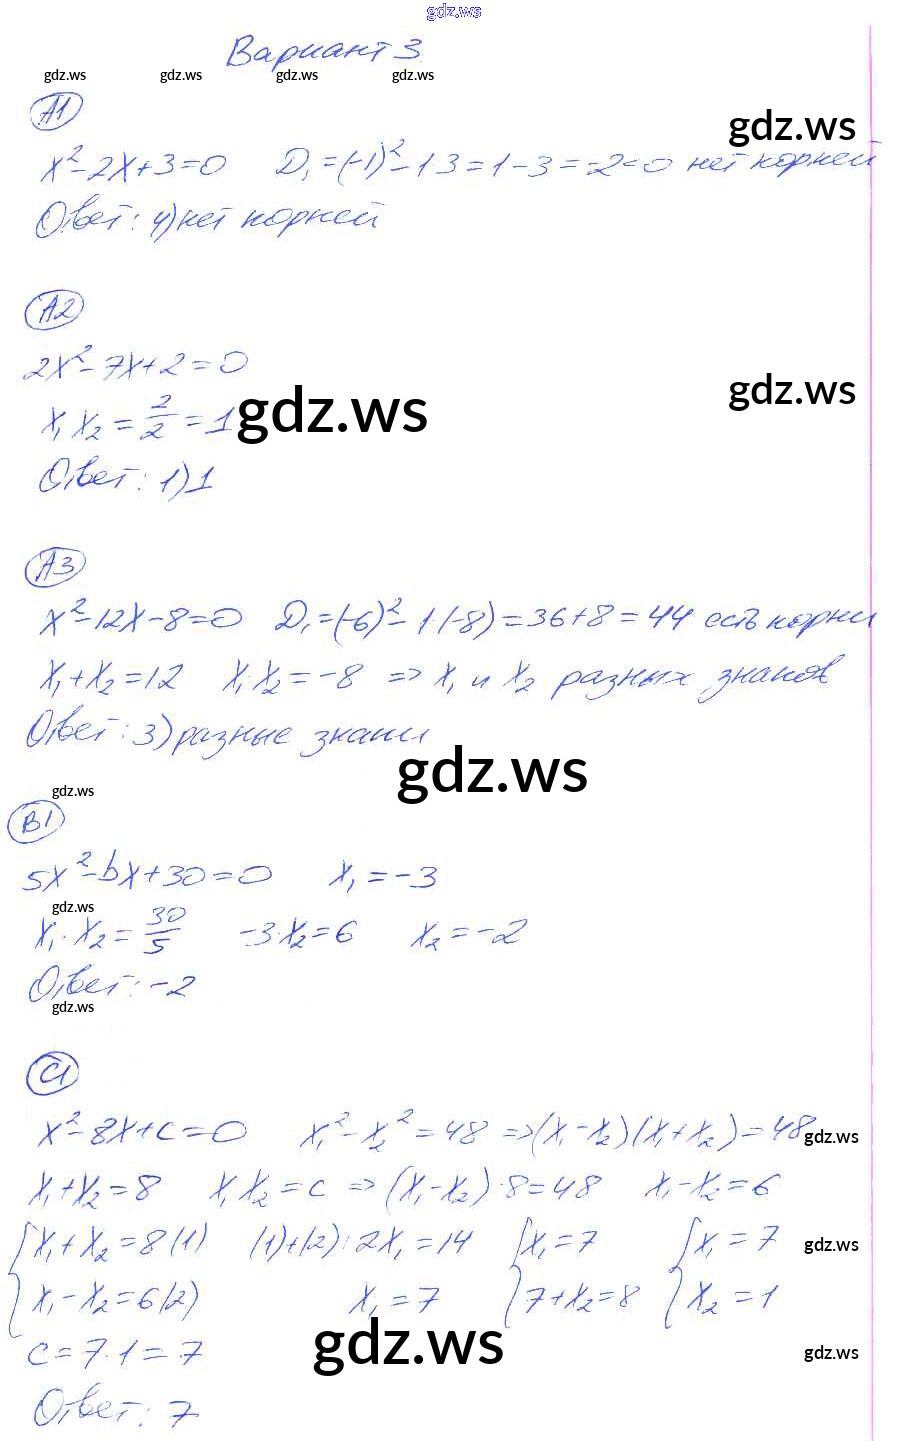 gdz.ws
Вариант 3
gdz.ws gdz.ws gdz.ws gdz.ws
А1
gdz.ws
x²-2x+3=0 D₁=(-1)²-1·3=1-3=-2<0 нет корней
Ответ: 4) нет корней
А2
2x²-7x+2=0
gdz.ws
x₁x₂=2/2=1
gdz.ws
Ответ: 1) 1
А3
x²-12x-8=0 D₁=(-6)²-1·(-8)=36+8=44 есть корни
x₁+x₂=12 x₁·x₂=-8 => x₁ и x₂ разных знаков
Ответ: 3) разные знаки
gdz.ws
gdz.ws
В1
5x²-bx+30=0 x₁=-3
gdz.ws
x₁·x₂=30/5 -3·x₂=6 x₂=-2
Ответ: -2
gdz.ws
С1
x²-8x+c=0 x₁²-x₂²=48 =>(x₁-x₂)(x₁+x₂)=48
gdz.ws
x₁+x₂=8 x₁x₂=c => (x₁-x₂)·8=48 x₁-x₂=6
{x₁+x₂=8 (1) (1)+(2): 2x₁=14 {x₁=7 {x₁=7
gdz.ws
x₁-x₂=6 (2) x₁=7 7+x₂=8 x₂=1
gdz.ws
c=7·1=7
gdz.ws
Ответ: 7